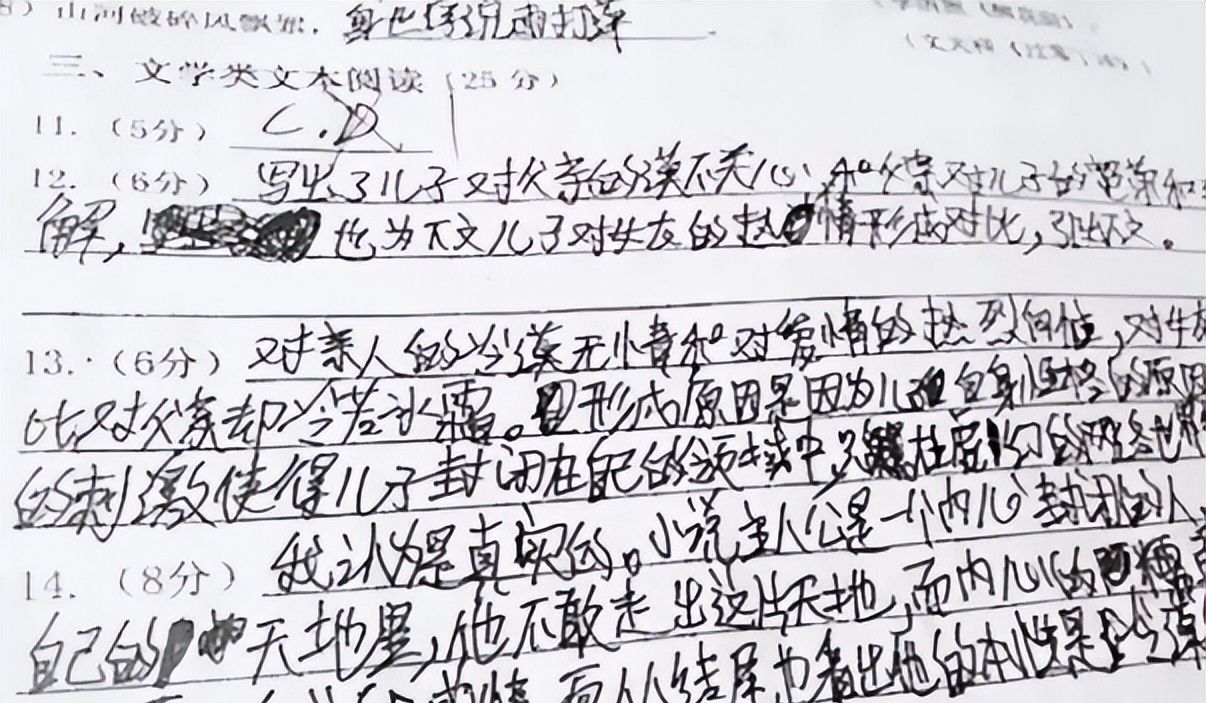 8）山河破碎风飘絮，身世浮沉雨打萍
三、文学类文本阅读（25分）
11.（5分）C.D
12.（6分）写出了儿子对父亲的漠不关心，和父亲对儿子的
解，也为下文儿子对女友的热情形成对比，引出下文。
13.（6分）对亲人的冷漠无情和对爱情的热烈向往，对女友
比，对父亲却冷若冰霜。形成原因是因为儿自身性格的原因
的刺激使得儿子封闭在自己的领域中，只在屏幻的网络世界
14.（8分）我认为是真实的。小说主人公是一个内心封闭的人
自己的天地里，他不敢走出这片天地，而内心的
结尾也看出他的本性是冷漠